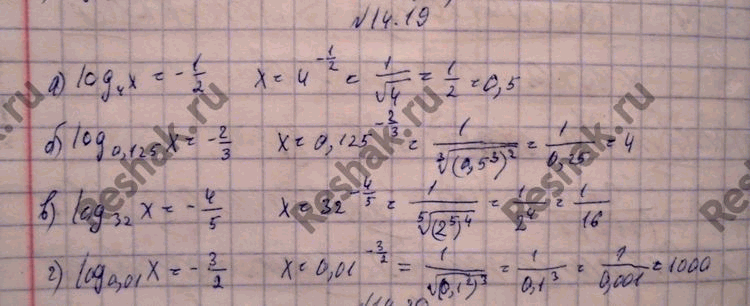 №14.19
а) log₄x = -1/2 x = 4^(-1/2) = 1/√4 = 1/2 = 0,5
б) log₀,₁₂₅x = -2/3 x = 0,125^(-2/3) = 1/∛((0,5³)²) = 1/0,25 = 4
в) log₃₂x = -4/5 x = 32^(-4/5) = 1/⁵√((2⁵)⁴) = 1/2⁴ = 1/16
г) log₀,₀₁x = -3/2 x = 0,01^(-3/2) = 1/√((0,1²)³) = 1/0,1³ = 1/0,001 = 1000
№14.20
Reshak.ru
Reshak.ru
Reshak.ru
Reshak.ru